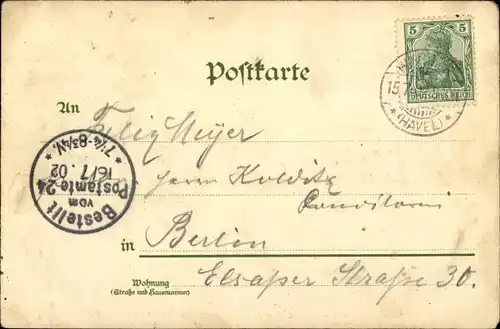 5
DEUTSCHES REICH
15.7.
* (HAVEL) *
Postkarte
An
Felix Meyer
Herrn Kolditz
Conditorei
in Berlin
Wohnung
(Straße und Hausnummer)
Elsaßer Straße 30.
Bestellt
vom
Postamte 24
16/7. 02
* 7¼-8¾V. *